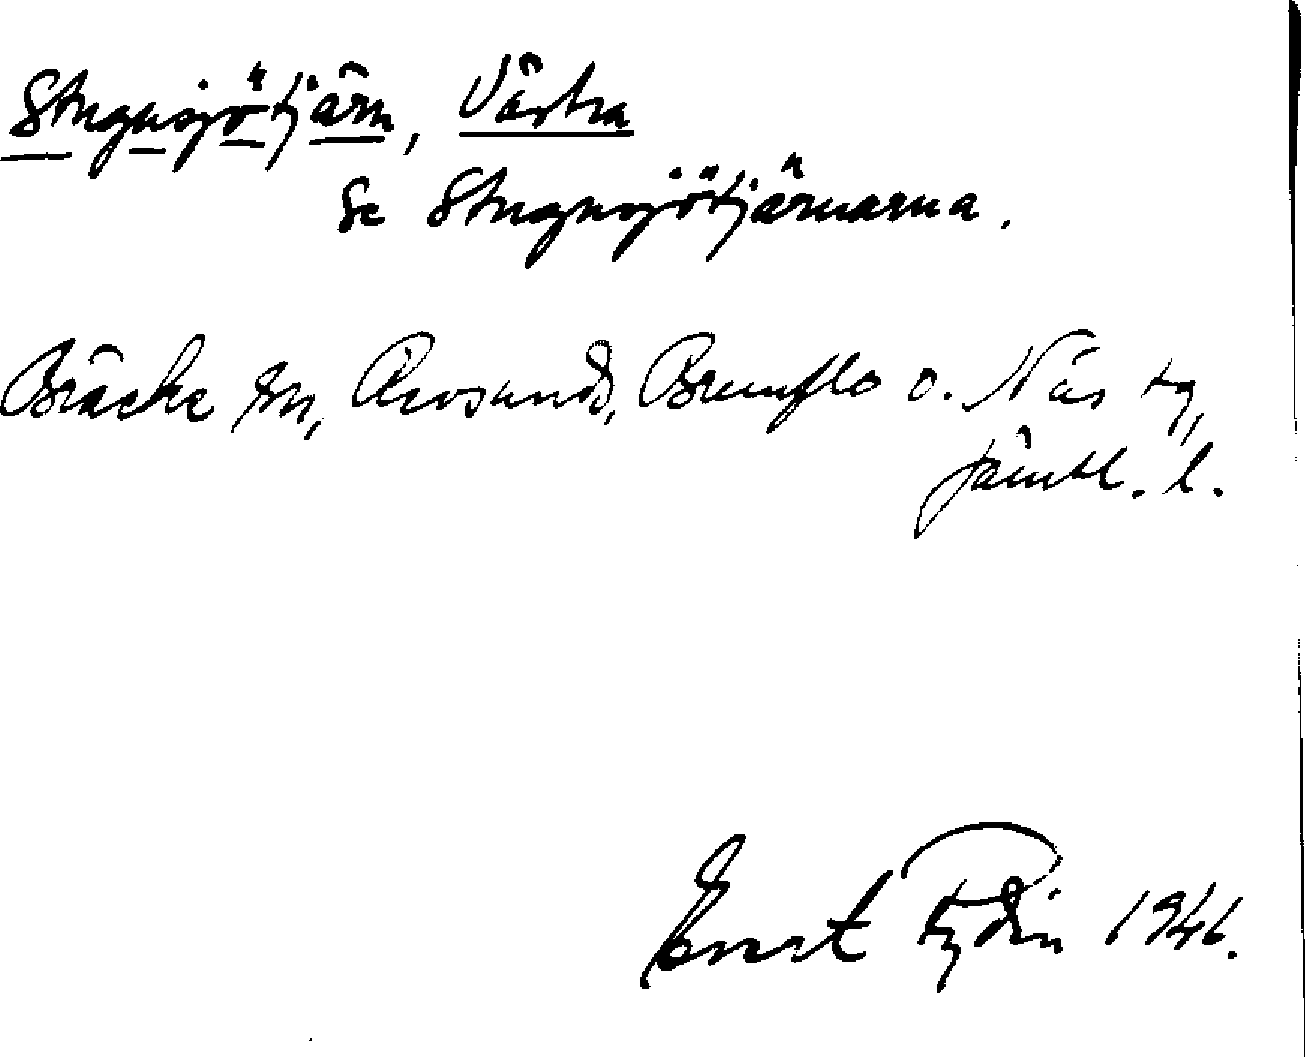 Stugusjötjärn, Västra
Se Stugusjötjärnarna.
Bräcke sn, Revsunds, Brunflo o. Näs tg,
Jämtl. l.
Ernst Rydin 1946.